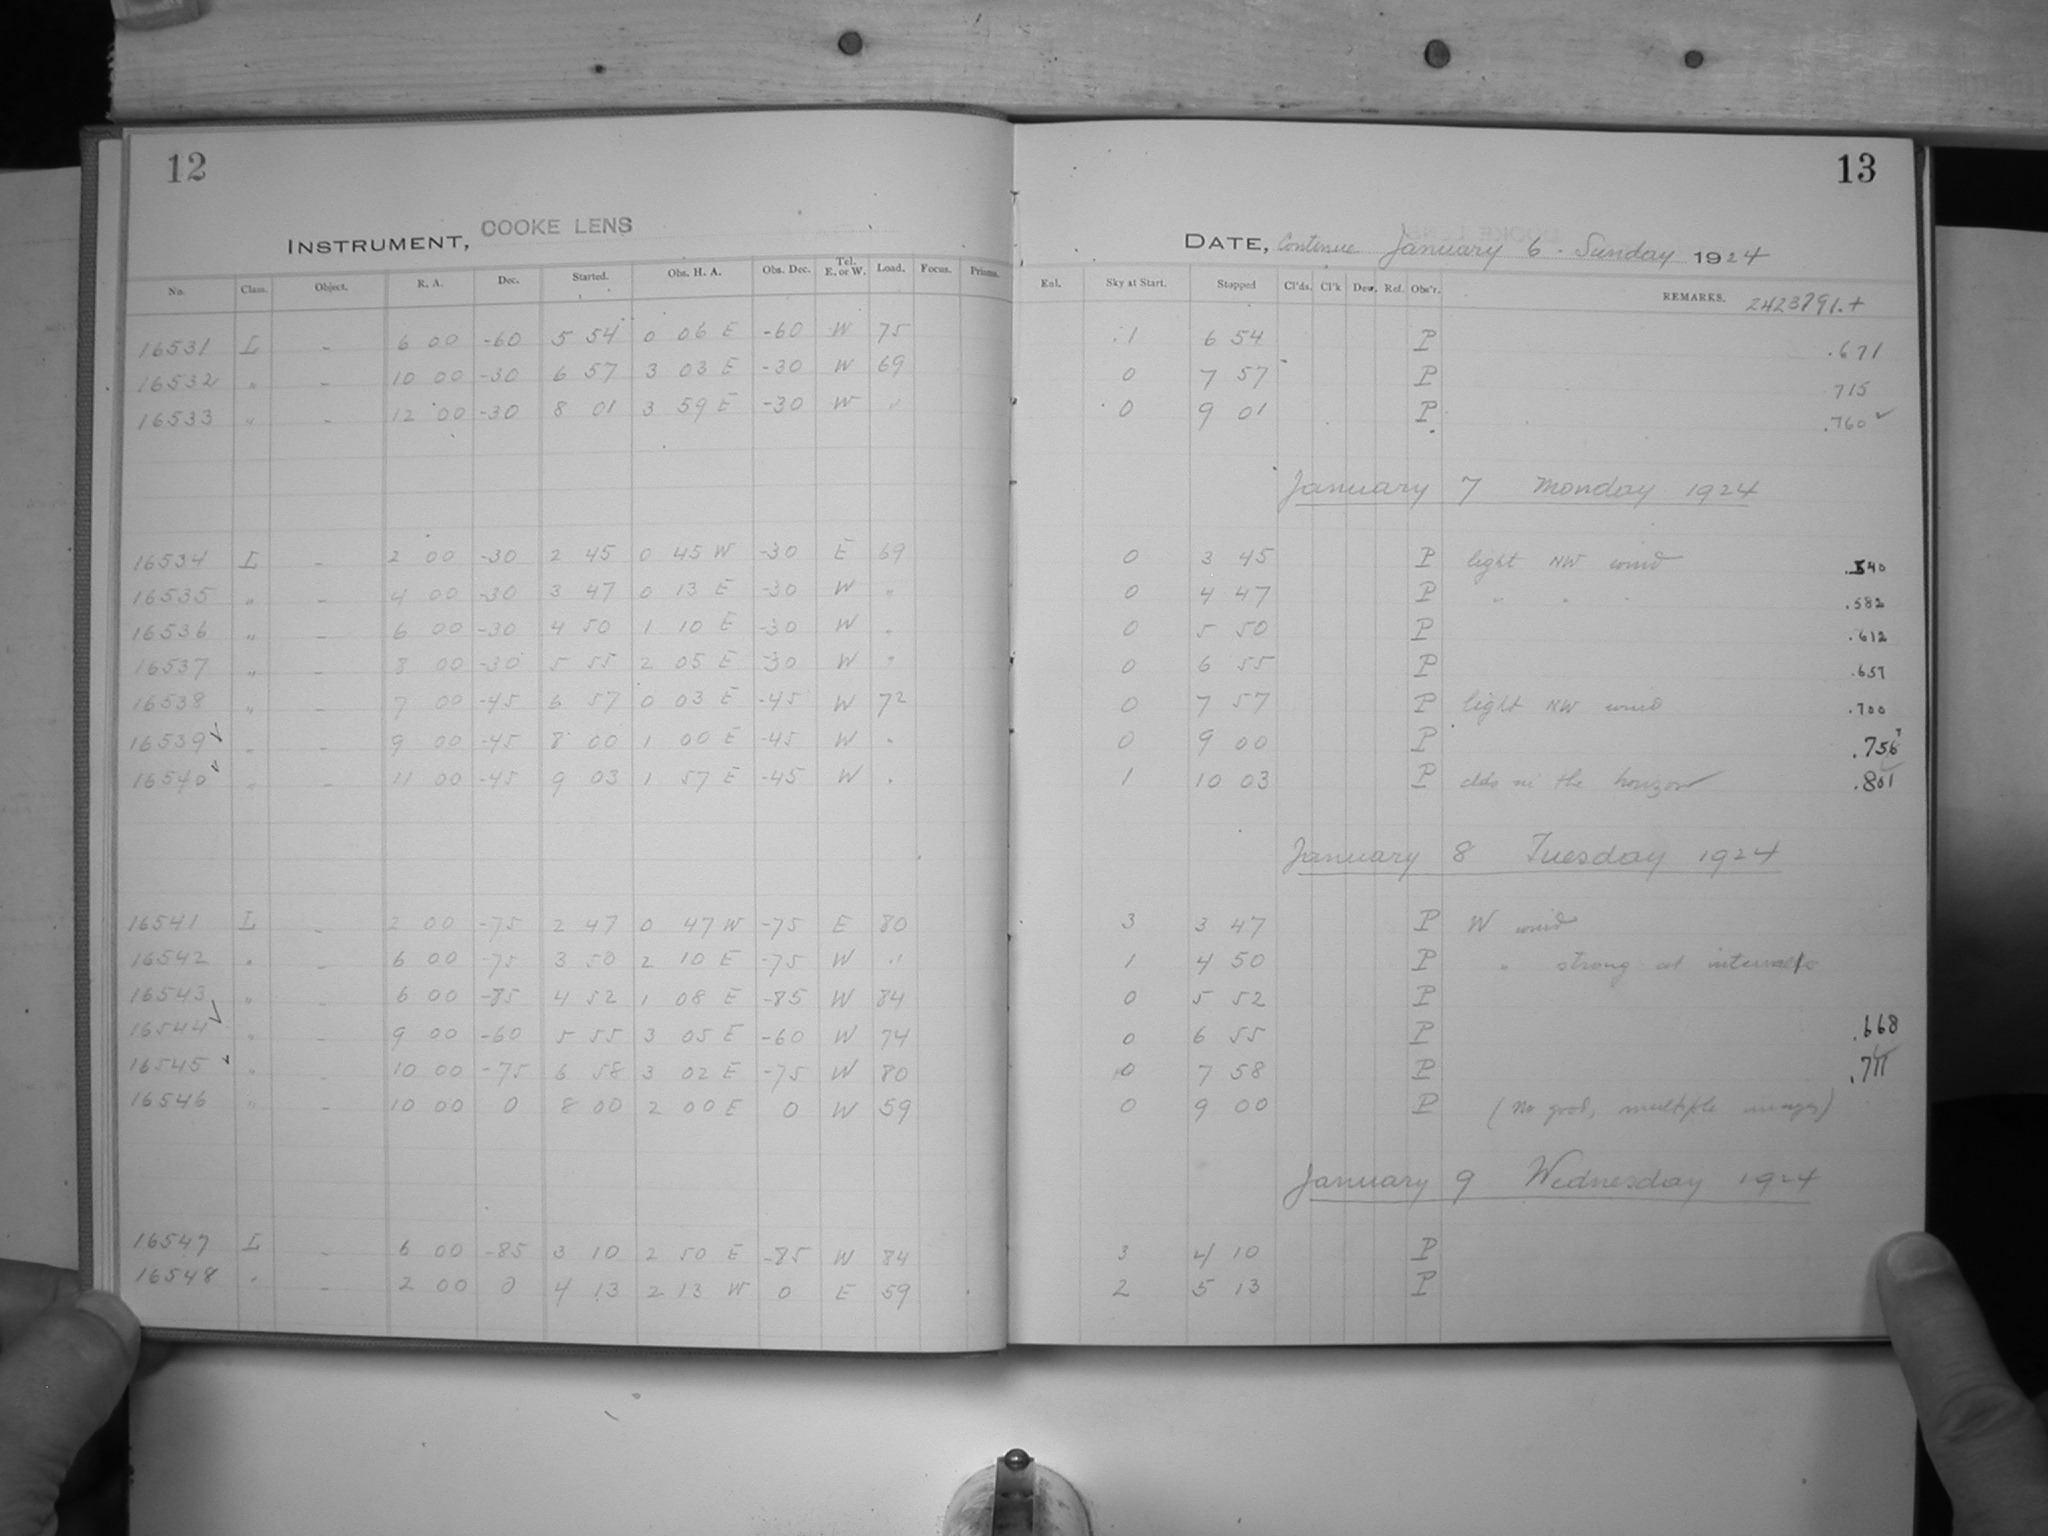 12
INSTRUMENT, COOKE LENS
No. Class. Object. R. A. Dec. Started. Obs. H. A. Obs. Dec. Tel. E. or W. Load. Focus. Prisms.
16531 L - 6 00 -60 5 54 0 06 E -60 W 75
16532 " - 10 00 -30 6 57 3 03 E -30 W 69
16533 " - 12 00 -30 8 01 3 59 E -30 W "
16534 L - 2 00 -30 2 45 0 45 W -30 E 69
16535 " - 4 00 -30 3 47 0 13 E -30 W "
16536 " - 6 00 -30 4 50 1 10 E -30 W "
16537 " - 8 00 -30 5 55 2 05 E -30 W "
16538 " - 7 00 -45 6 57 0 03 E -45 W 72
16539 ✓ " - 9 00 -45 8 00 1 00 E -45 W "
16540 ✓ " - 11 00 -45 9 03 1 57 E -45 W "
16541 L - 2 00 -75 2 47 0 47 W -75 E 80
16542 " - 6 00 -75 3 50 2 10 E -75 W "
16543 " - 6 00 -85 4 52 1 08 E -85 W 84
16544 ✓ " - 9 00 -60 5 55 3 05 E -60 W 74
16545 ✓ " - 10 00 -75 6 58 3 02 E -75 W 80
16546 " - 10 00 0 8 00 2 00 E 0 W 59
16547 L - 6 00 -85 3 10 2 50 E -85 W 84
16548 " - 2 00 0 4 13 2 13 W 0 E 59
13
DATE, Continue January 6 . Sunday 1924
Exl. Sky at Start. Stopped Cl'ds. Cl'k Dew. Ref. Obs'r. REMARKS. 2423791.+
.1 6 54 P .671
0 7 57 P 715
0 9 01 P .760 ✓
January 7 Monday 1924
0 3 45 P light NW wind .540
0 4 47 P " " " .582
0 5 50 P .612
0 6 55 P .657
0 7 57 P light NW wind .700
0 9 00 P .756
1 10 03 P clds in the horizon .801
January 8 Tuesday 1924
3 3 47 P W wind
1 4 50 P " strong at intervals
0 5 52 P
0 6 55 P .668
0 7 58 P .711
0 9 00 P (No good, multiple images)
January 9 Wednesday 1924
3 4 10 P
2 5 13 P